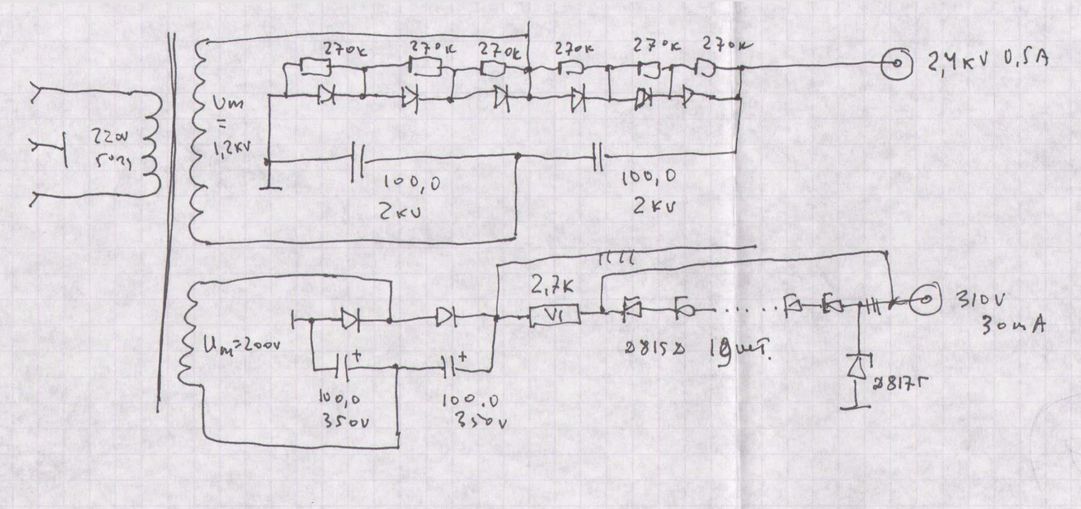 270к 270к 270к 270к 270к 270к
2,4кV 0,5А
Uм
=
1,2кV
220V
50Гц
100,0
2кV
100,0
2кV
2,7К
VI
Uм=200V
Д815Д 19шт.
310V
30мА
Д817Г
100,0
350V
100,0
350V